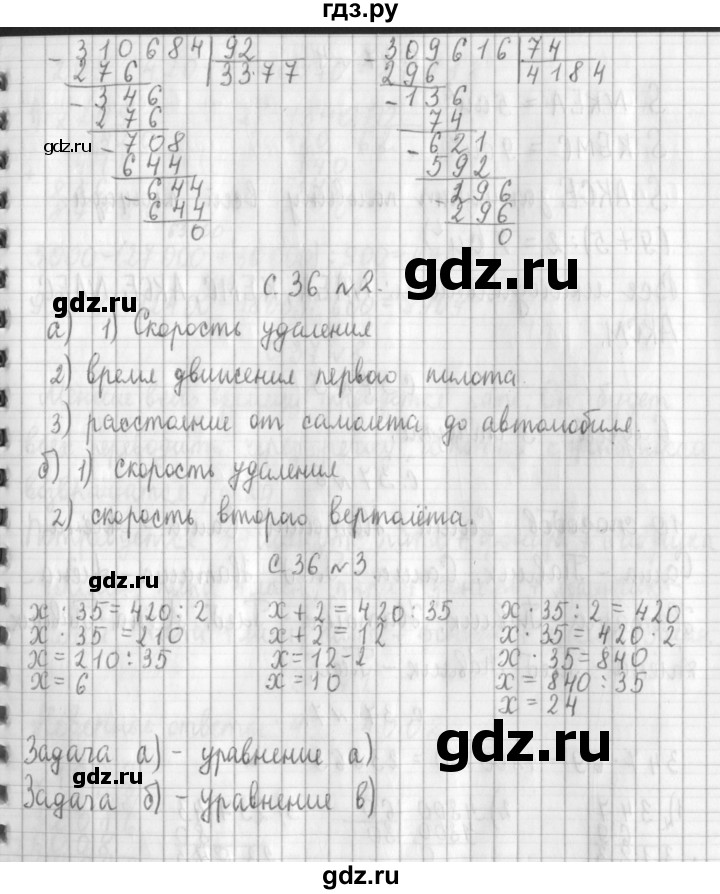 гдз.ру
- 310684 | 92
276 | 3377
- 346
276
- 708
644
- 644
644
0
- 309616 | 74
296 | 4184
- 136
74
- 621
592
- 296
296
0
gdz.ru
gdz.ru
С. 36 №2.
gdz.ru
а) 1) Скорость удаления
2) время движения первого пилота.
3) расстояние от самолета до автомобиля.
б) 1) скорость удаления
2) скорость второго вертолёта.
С 36 №3
gdz.ru
x · 35 = 420 : 2
x · 35 = 210
x = 210 : 35
x = 6
x + 2 = 420 : 35
x + 2 = 12
x = 12 - 2
x = 10
x · 35 : 2 = 420
x · 35 = 420 · 2
x · 35 = 840
x = 840 : 35
x = 24
gdz.ru
Задача а) - уравнение а)
gdz.ru
Задача б) - уравнение в)
gdz.ru